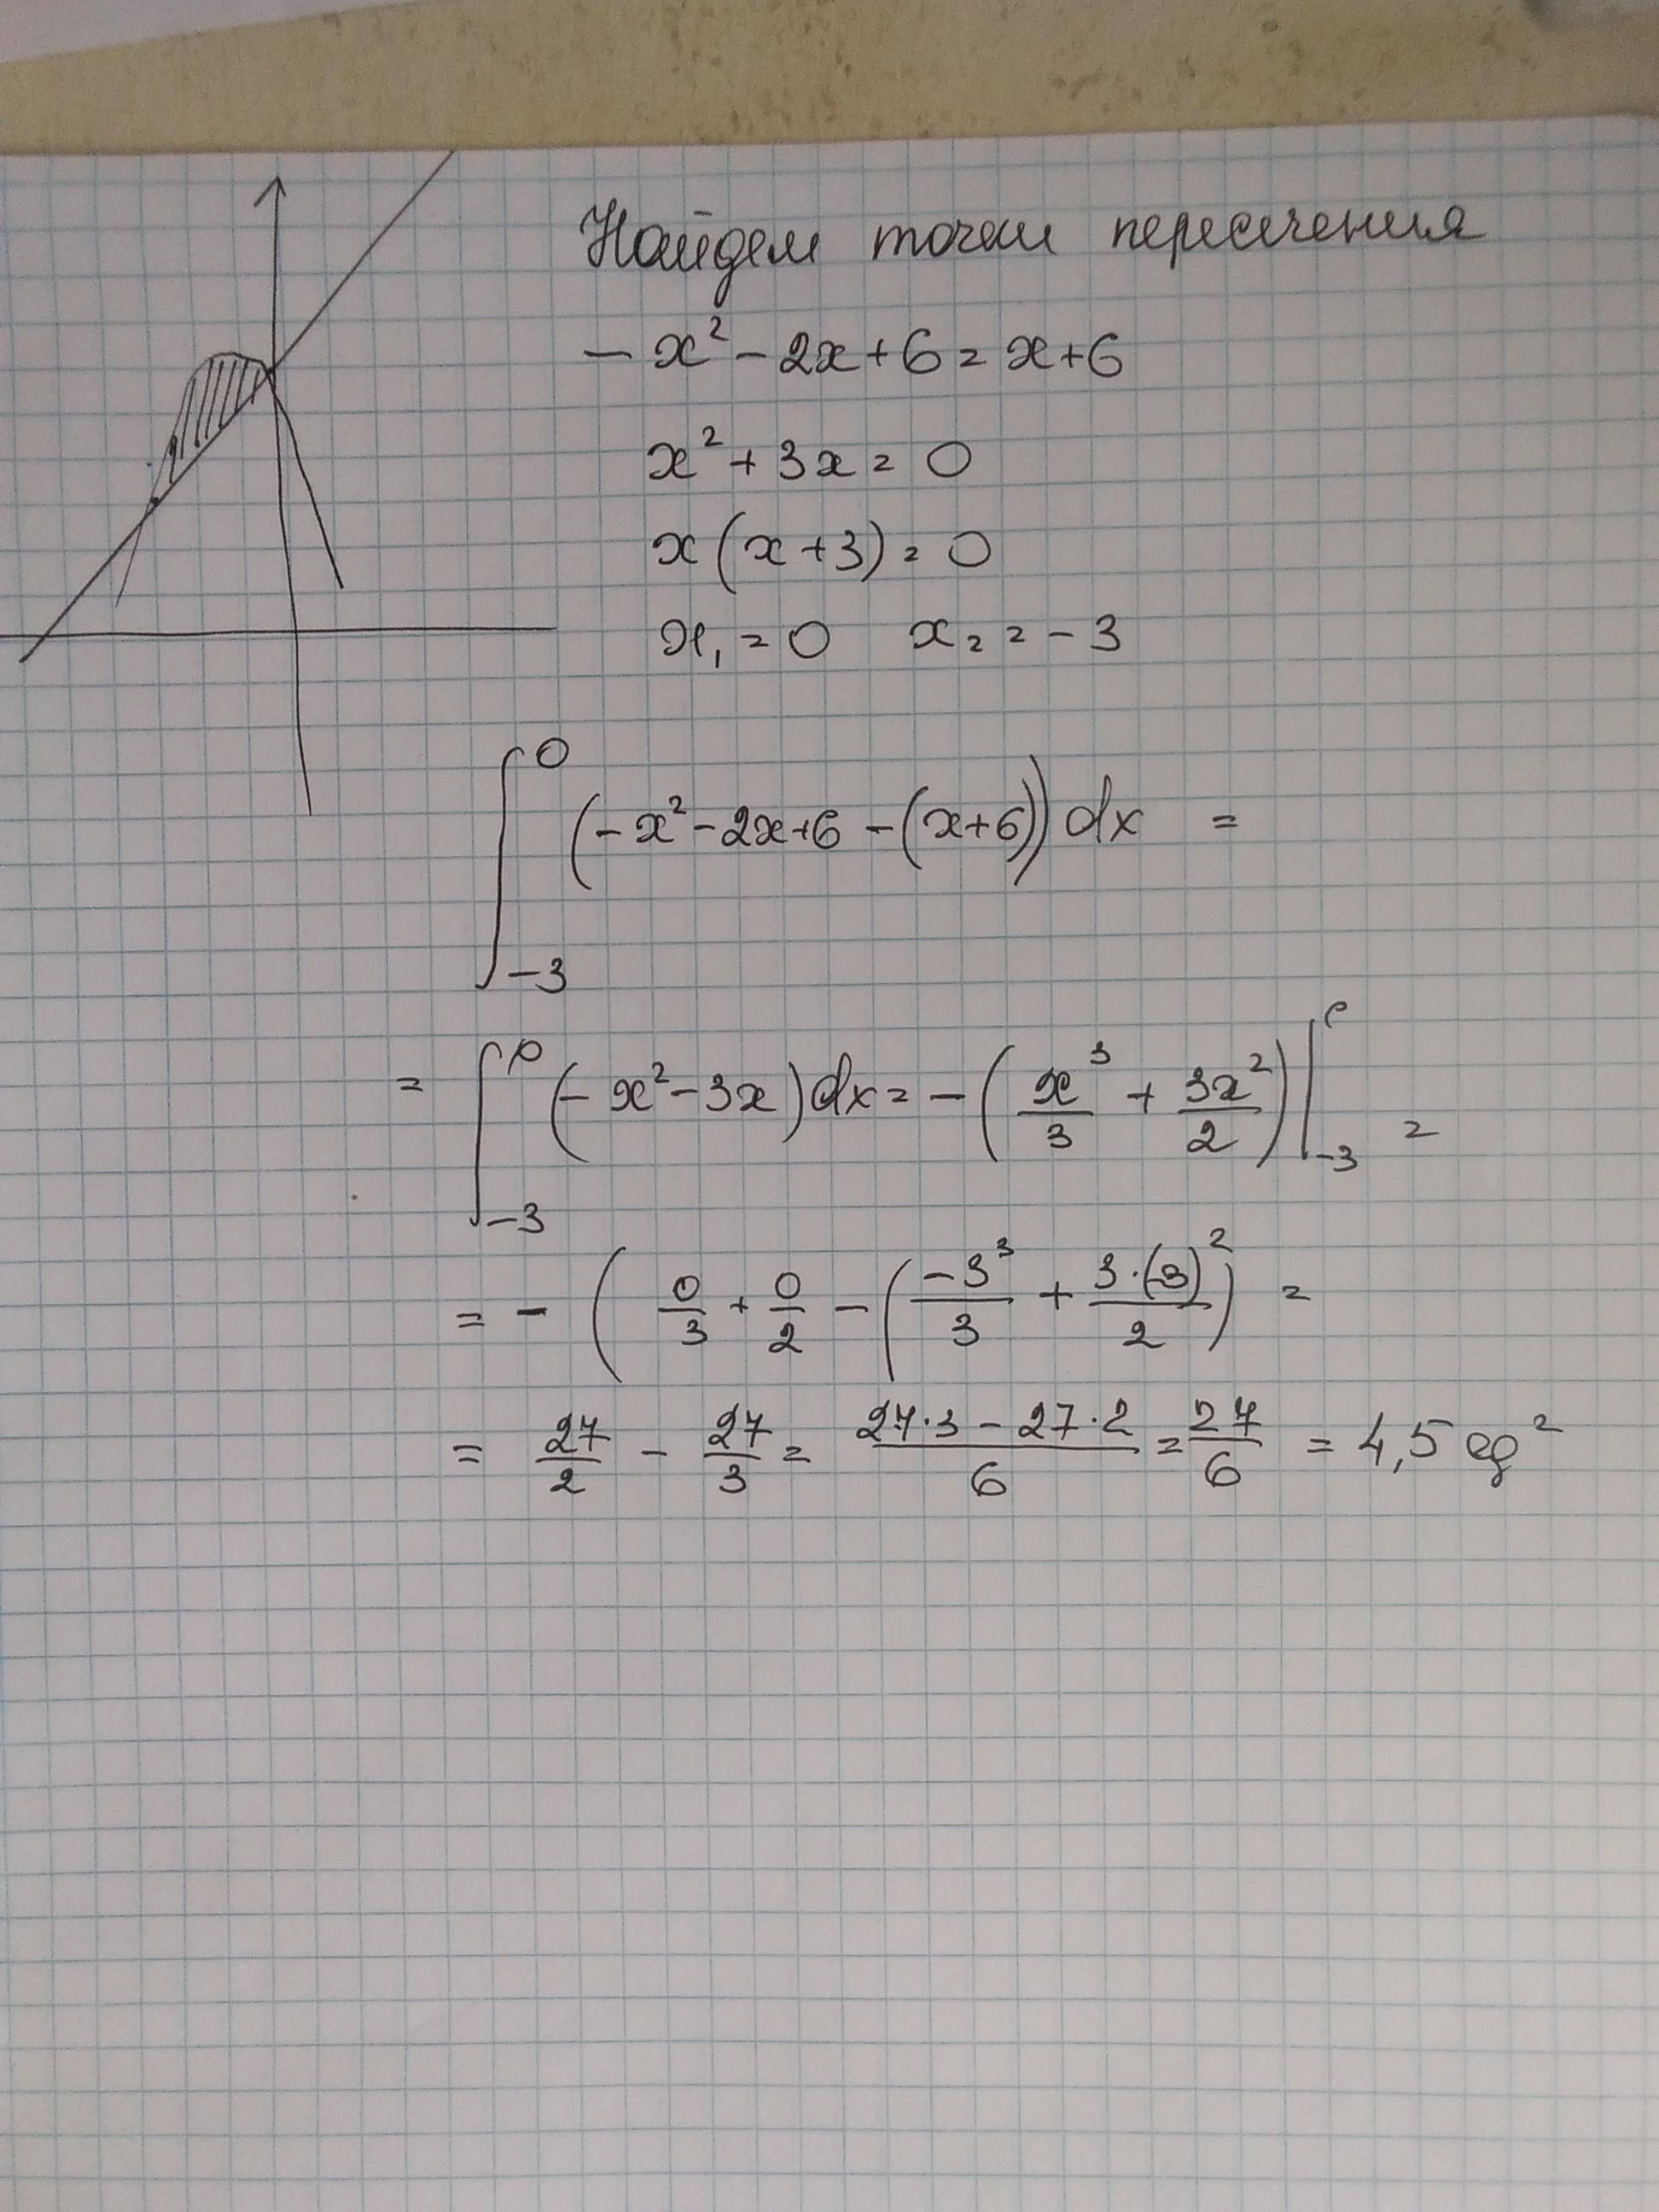 Найдем точки пересечения
− x² − 2x + 6 = x + 6
x² + 3x = 0
x(x + 3) = 0
x₁ = 0   x₂ = −3
∫₋₃⁰ (− x² − 2x + 6 − (x + 6)) dx =
= ∫₋₃⁰ (− x² − 3x) dx = − (x³/3 + 3x²/2) |₋₃⁰ =
= − ( 0/3 + 0/2 − (−3³/3 + 3·(−3)²/2) =
= 27/2 − 27/3 = (27·3 − 27·2)/6 = 27/6 = 4,5 ед²